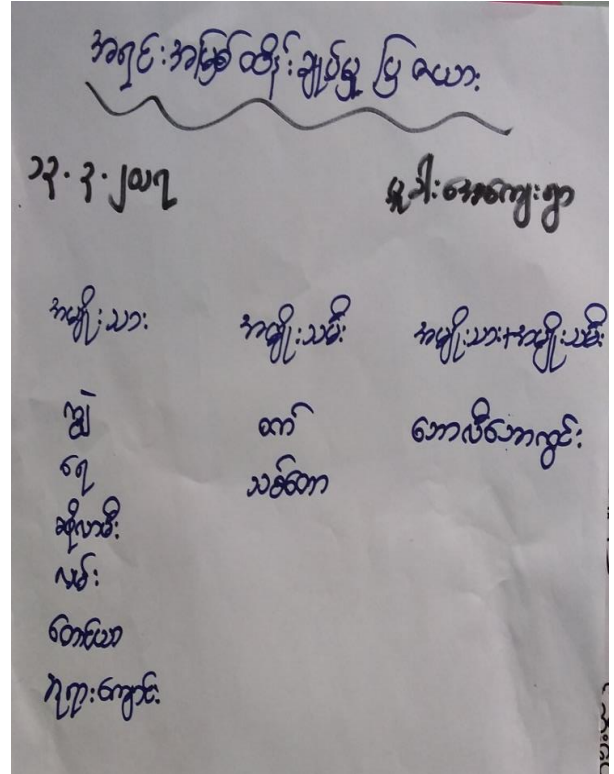 အရင်းအမြစ်ထိန်းချုပ်မှု ပြဇယား
၁၃.၃.၂၀၁၇
မူဒါးအကျေးရွာ
အမျိုးသား အမျိုးသမီး အမျိုးသား+အမျိုးသမီး
ကျွဲ စက် ဘောလီဘောကွင်း
ရေ သစ်တော
ဆိုလာမီး
လမ်း
တောင်ယာ
ဘုရားကျောင်း